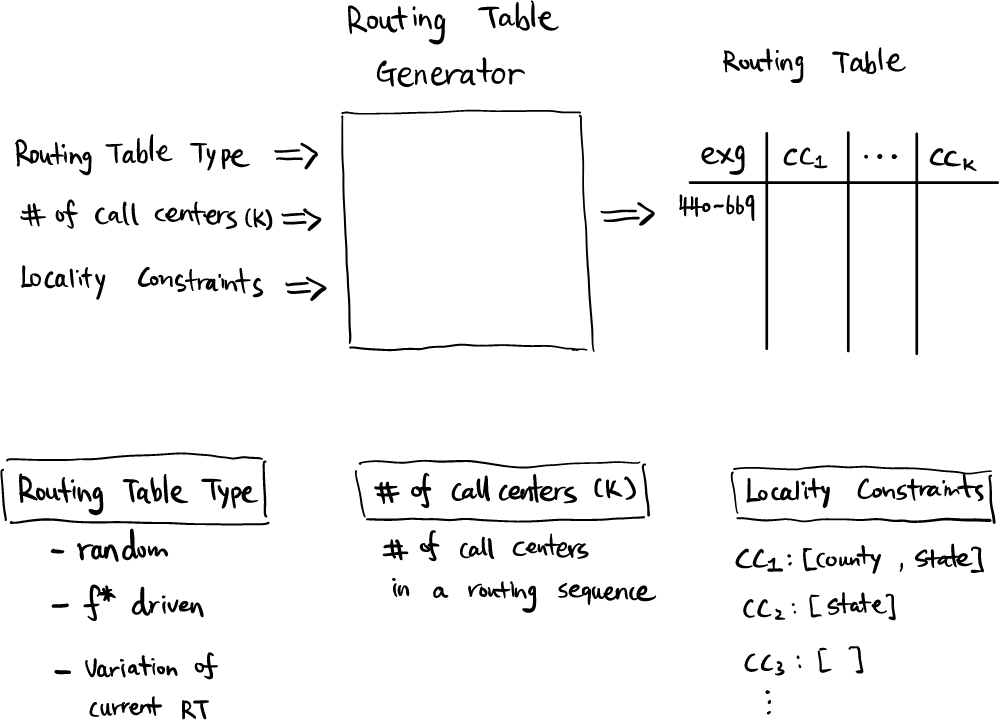 Routing Table
Generator
Routing Table
Routing Table Type ⇒
# of call centers (K) ⇒
Locality Constraints ⇒
⇒
exg CC₁ ... CCₖ
440-669
Routing Table Type
- random
- f* driven
- Variation of
current RT
# of call centers (K)
# of call centers
in a routing sequence
Locality Constraints
CC₁ : [county , state]
CC₂ : [state]
CC₃ : [ ]
⋮